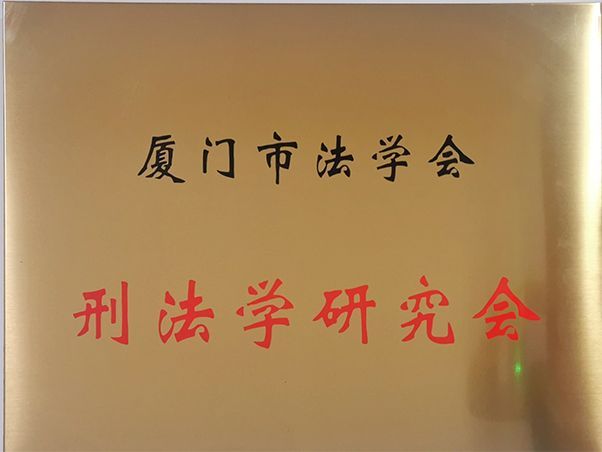 厦门市法学会
刑法学研究会